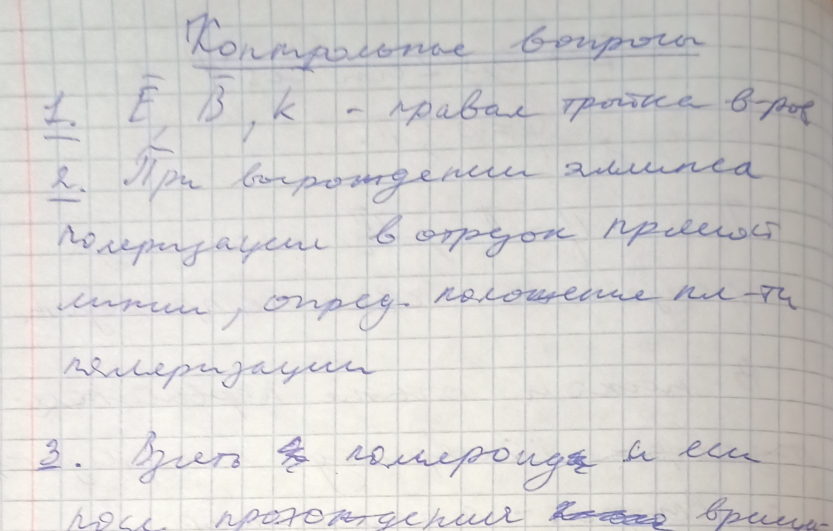 Контрольные вопросы
1. Ē, B̄, k̄ - правая тройка в-ров
2. При вырождении эллипса
поляризации в отрезок прямой
линии, опред. положение пл-ти
поляризации
3. Взять поляроид и если
после прохождения время